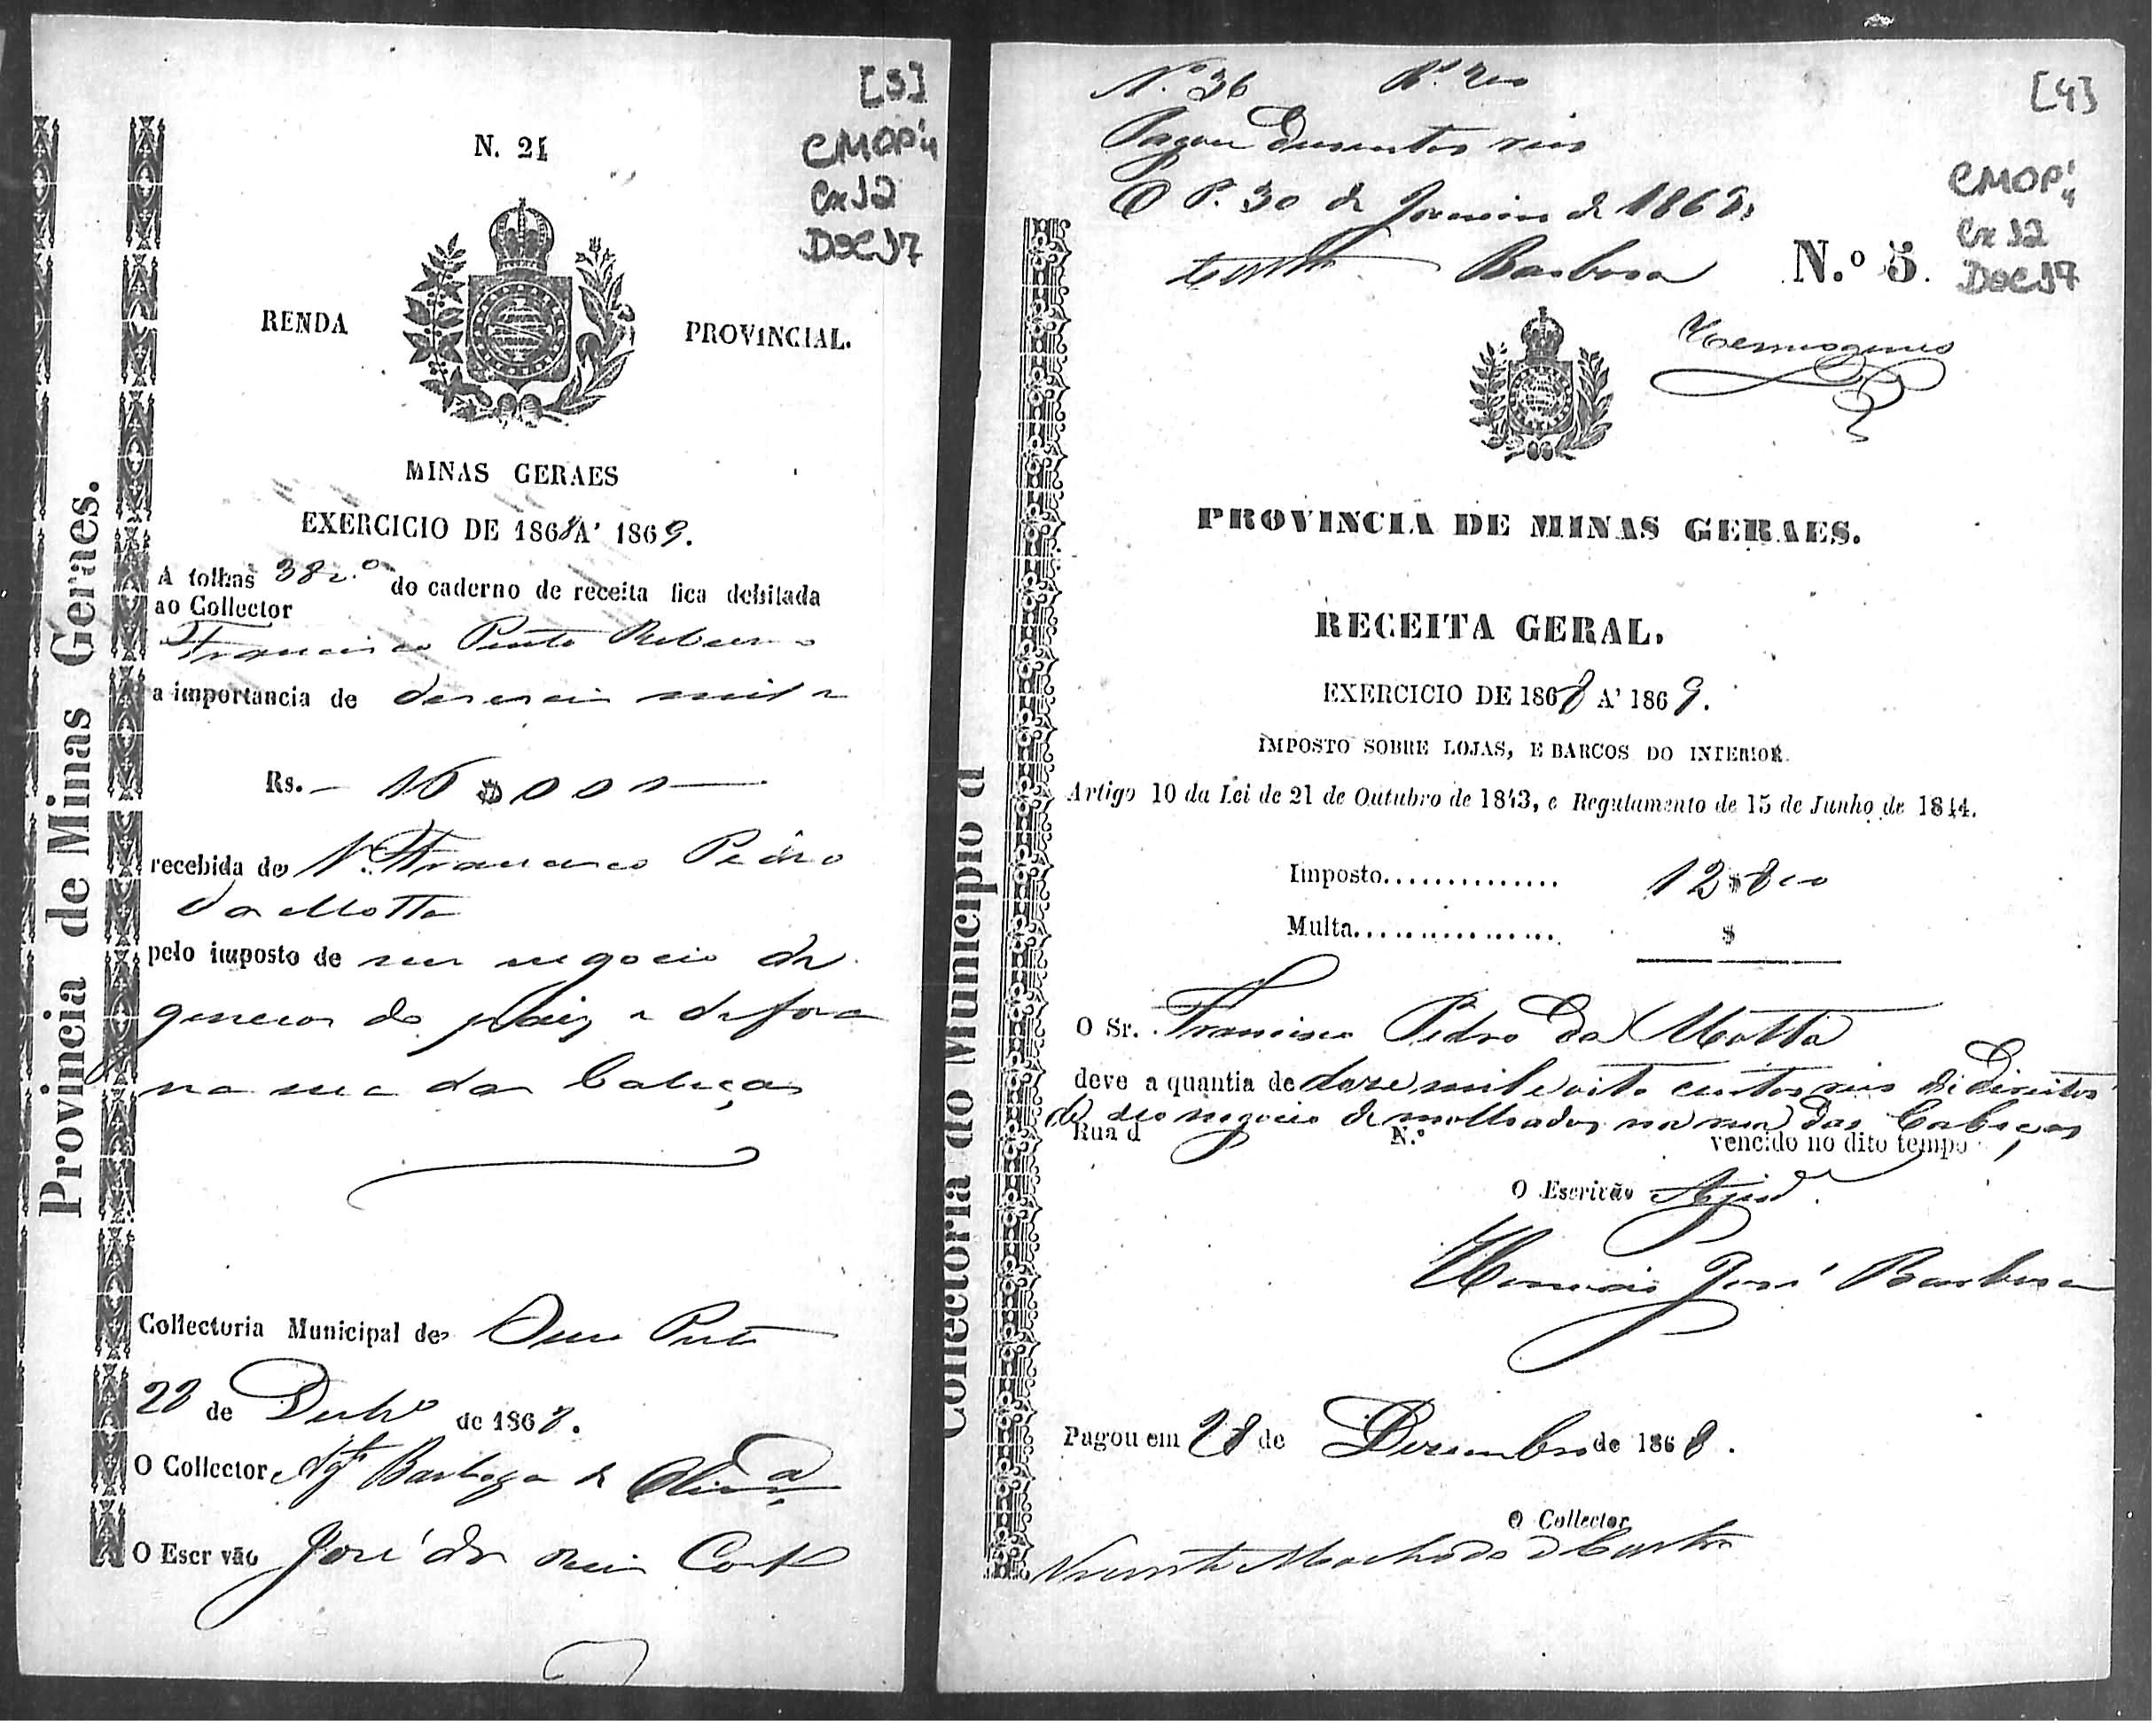 [3]
CMOP"
Cx 12
DOC 17
N. 21
RENDA PROVINCIAL.
MINAS GERAES
EXERCICIO DE 1868 A' 1869.
A folhas 38 v.º do caderno de receita fica debitada
ao Collector
Francisco Pinto
a importancia de deseseis mil r
Rs. 16$000
recebida de Francisco Pedro
da Motta
pelo imposto de seu negocio de
generos do paiz e de fora
na rua das Cabeças
Collectoria Municipal de Ouro Preto
28 de Dezbro de 1868.
O Collector Barboza de Olivra
O Escrivão José dos Reis
Provincia de Minas Geraes.
[4]
CMOP"
Cx 12
DOC 17
N.º 36 Rs. 200
Pagou dusentos reis
O P. 30 de Janeiro de 1869
Barbosa
N.º 5.
Hermogenes
PROVINCIA DE MINAS GERAES.
RECEITA GERAL.
EXERCICIO DE 1868 A' 1869.
IMPOSTO SOBRE LOJAS, E BARCOS DO INTERIOR.
Artigo 10 da Lei de 21 de Outubro de 1843, e Regulamento de 15 de Junho de 1844.
Imposto............... 12$800
Multa................. $
O Sr. Francisco Pedro da Motta
deve a quantia de doze mil e oito centos reis de Direitos
de seo negocio de molhados na rua das Cabeças
Rua d N.º vencido no dito tempo
O Escrivão Ajud.
José Barbosa
Pagou em 28 de Dezembro de 1868.
O Collector
Vicente Machado de Castro
Collectoria do Municipio d